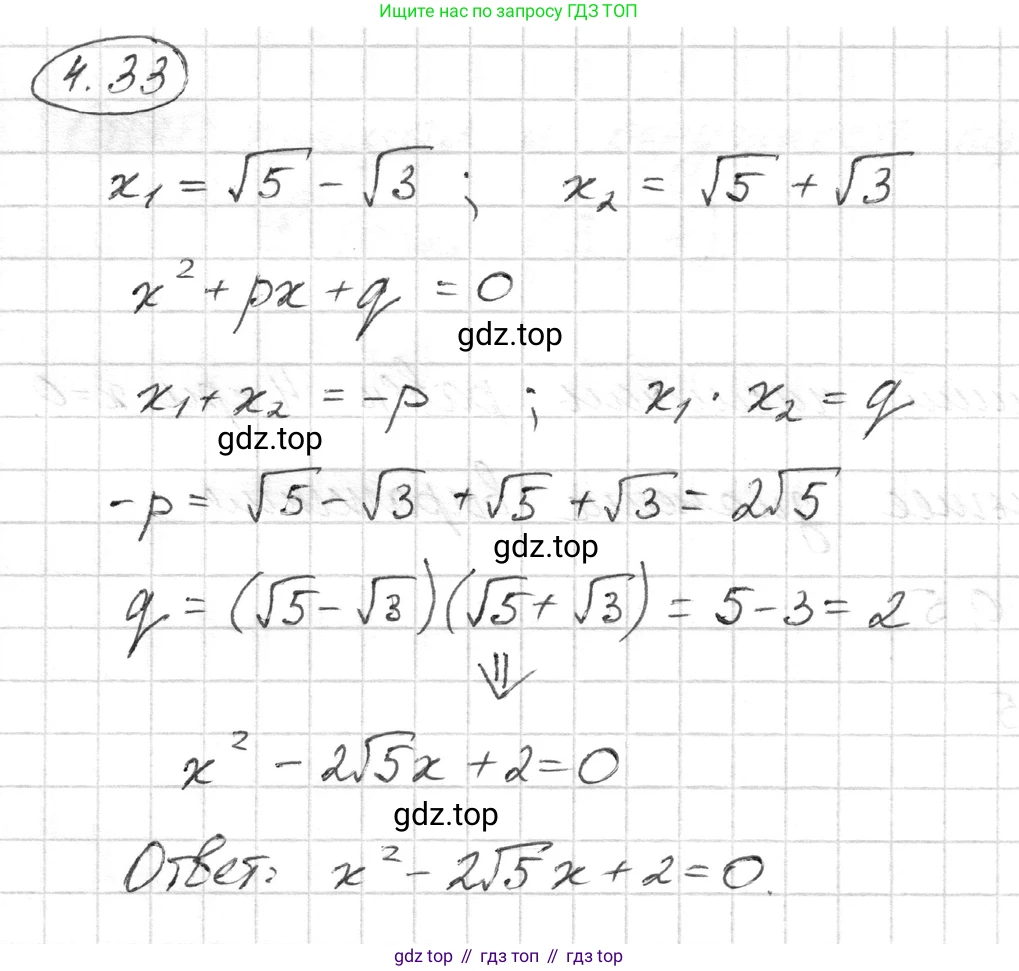 Ищите нас по запросу ГДЗ ТОП
4.33
x₁ = √5 - √3 ; x₂ = √5 + √3
x² + px + q = 0
gdz.top
x₁ + x₂ = -p ; x₁ · x₂ = q
gdz.top
-p = √5 - √3 + √5 + √3 = 2√5
gdz.top
q = (√5 - √3)(√5 + √3) = 5 - 3 = 2
⇓
x² - 2√5x + 2 = 0
gdz.top
Ответ: x² - 2√5x + 2 = 0.
gdz top // гдз топ // gdz.top